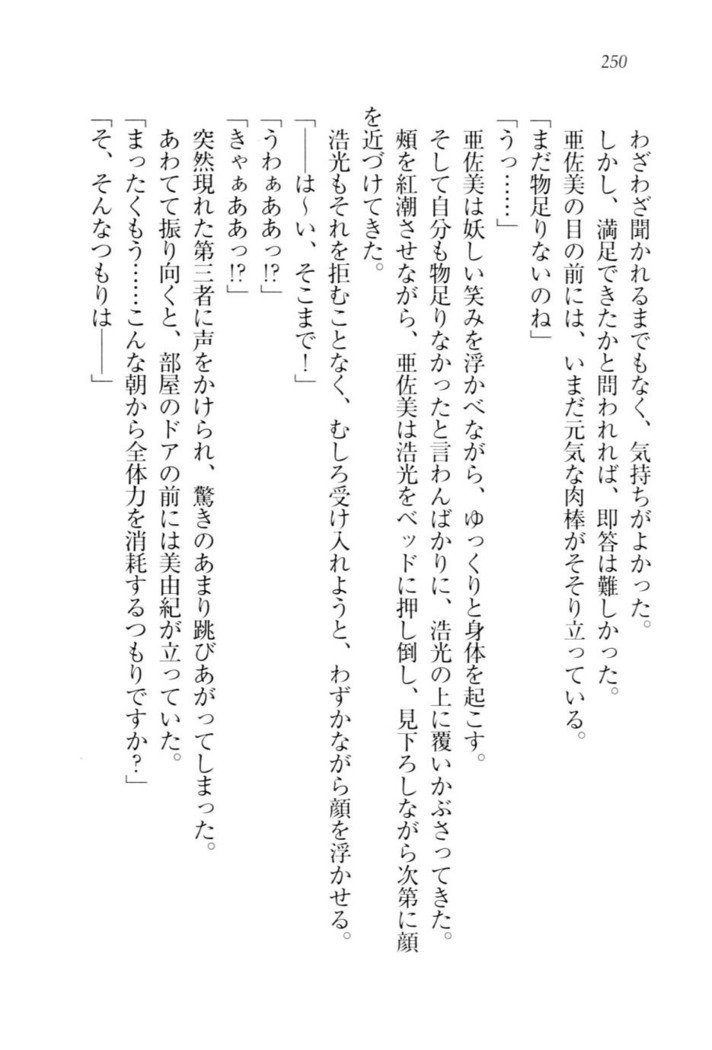 250
わざわざ聞かれるまでもなく、気持ちがよかった。
しかし、満足できたかと問われれば、即答は難しかった。
亜佐美の目の前には、いまだ元気な肉棒がそそり立っている。
「まだ物足りないのね」
「うっ……」
亜佐美は妖しい笑みを浮かべながら、ゆっくりと身体を起こす。
そして自分も物足りなかったと言わんばかりに、浩光の上に覆いかぶさってきた。
頬を紅潮させながら、亜佐美は浩光をベッドに押し倒し、見下ろしながら次第に顔
を近づけてきた。
浩光もそれを拒むことなく、むしろ受け入れようと、わずかながら顔を浮かせる。
「――は～い、そこまで！」
「うわぁああっ!?」
「きゃぁああっ!?」
突然現れた第三者に声をかけられ、驚きのあまり跳びあがってしまった。
あわてて振り向くと、部屋のドアの前には美由紀が立っていた。
「まったくもう……こんな朝から全体力を消耗するつもりですか？」
「そ、そんなつもりは――」